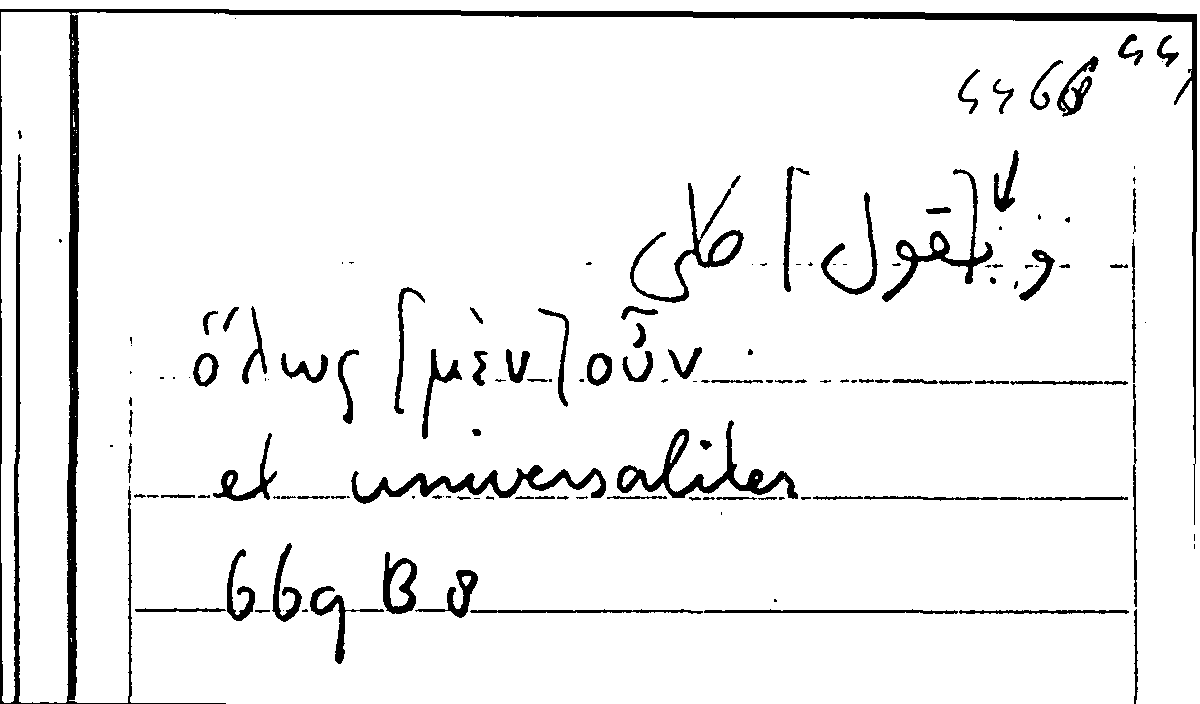 و [بقول] كلى
ὅλως [μὲν] οὖν
et universaliter
669 B 8